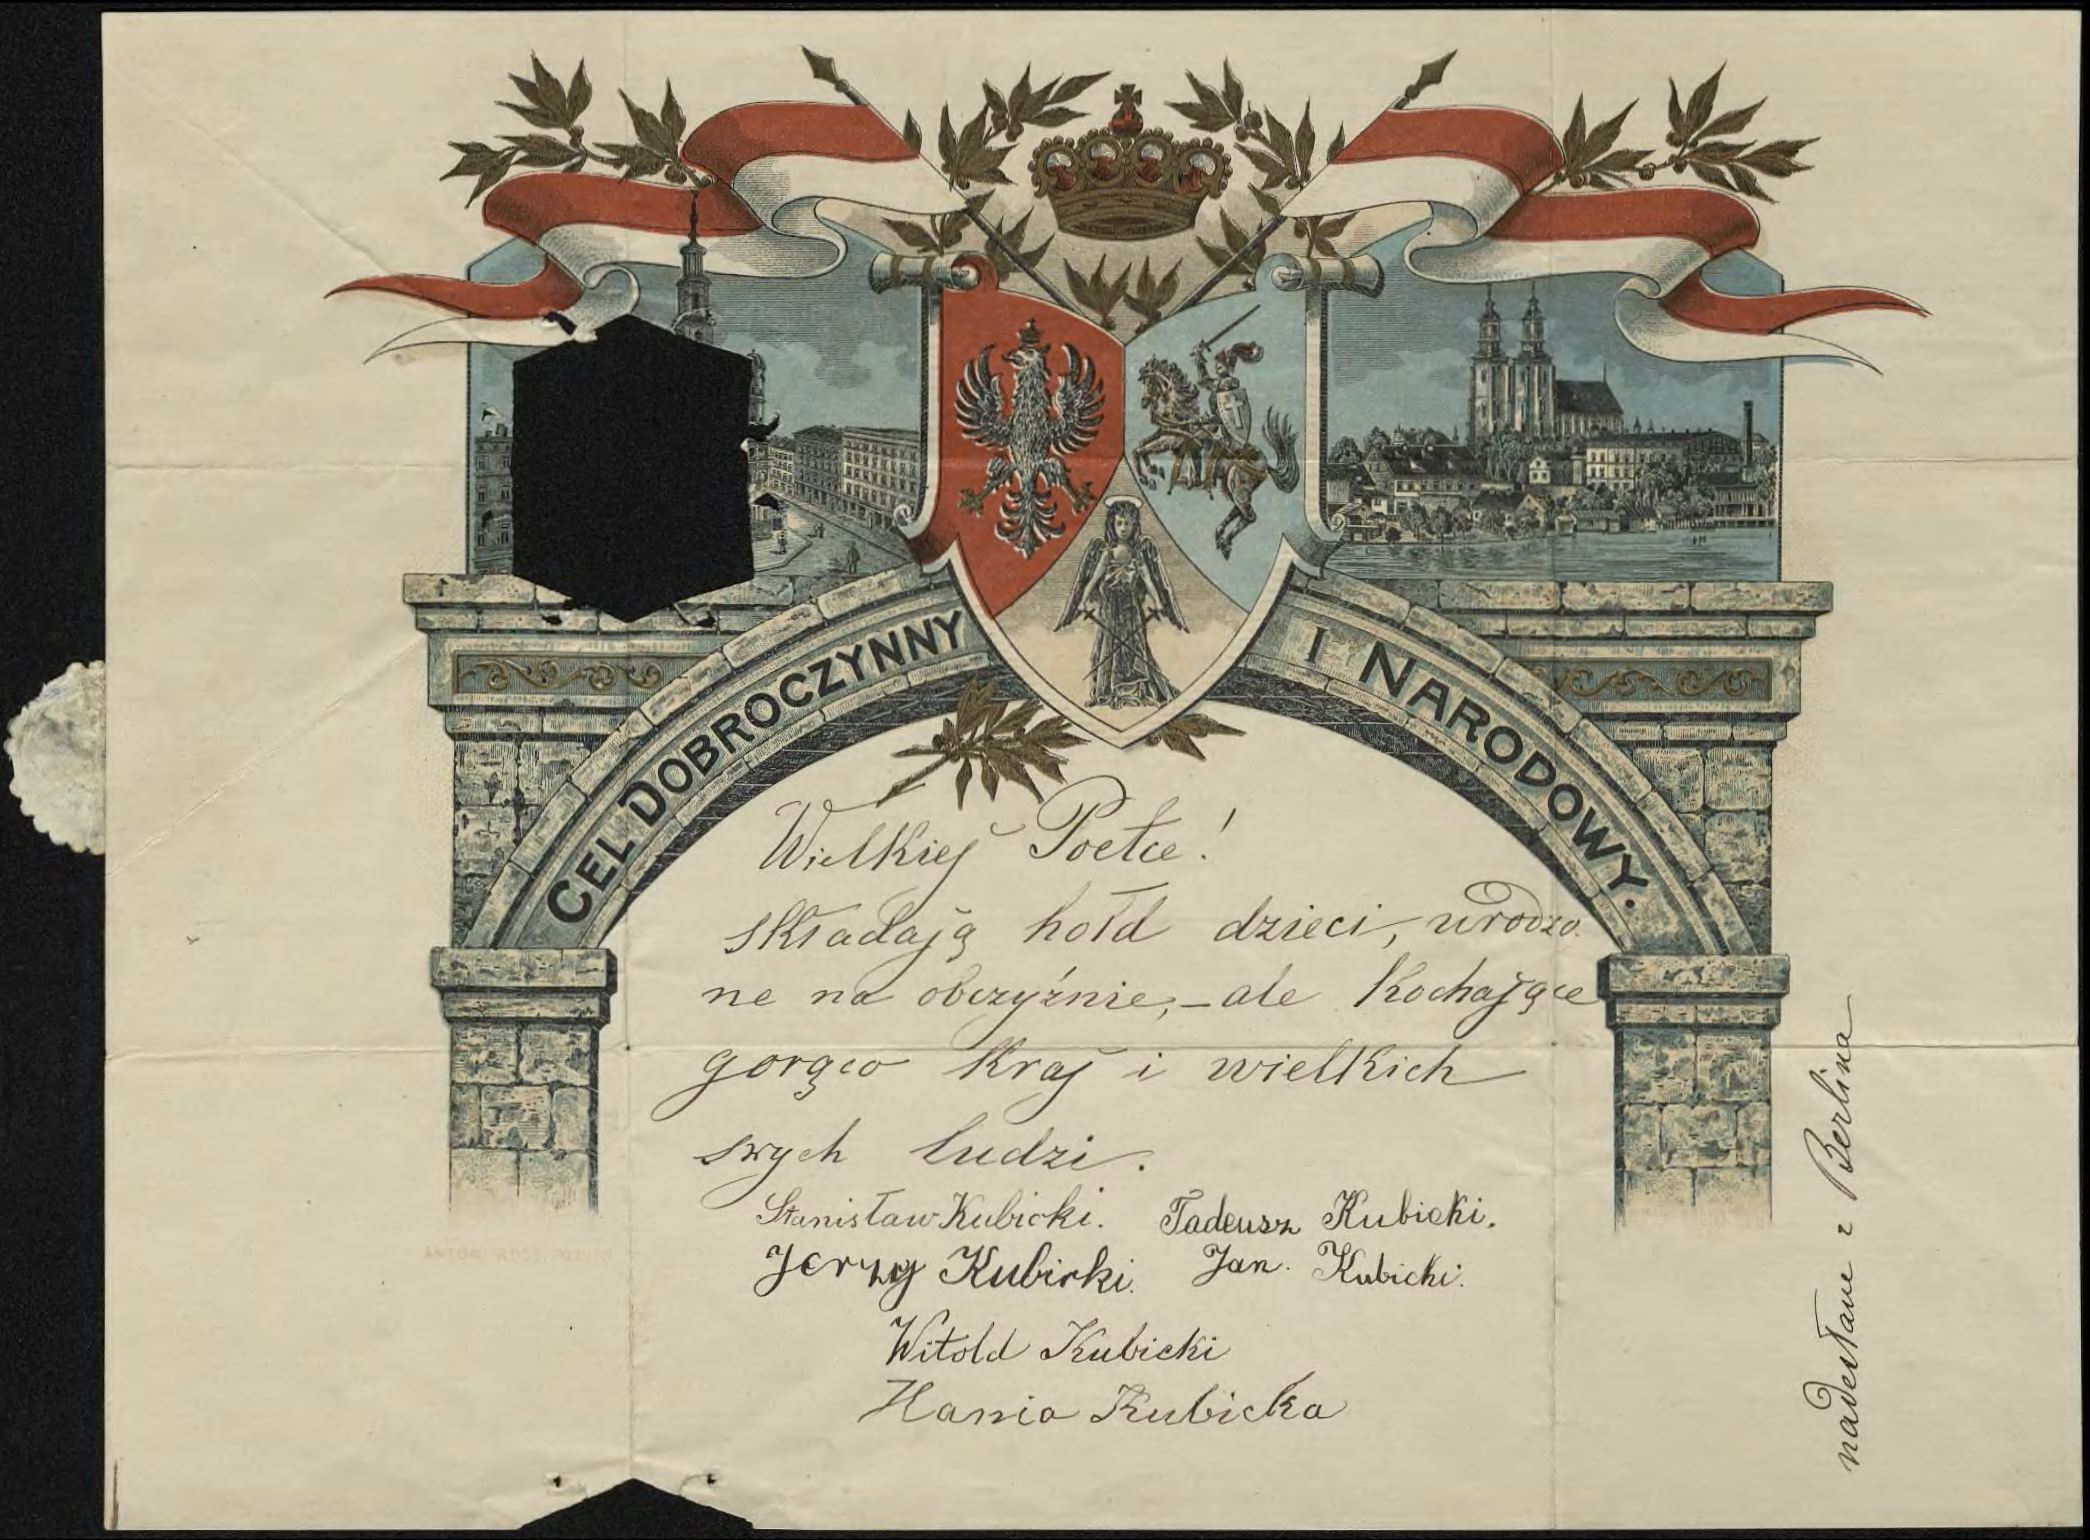 CEL DOBROCZYNNY I NARODOWY.
Wielkiej Poetce!
składają hołd dzieci, urodzo
ne na obczyźnie, – ale kochające
gorąco kraj i wielkich
swych ludzi.
Stanisław Kubicki. Tadeusz Kubicki.
Jerzy Kubicki. Jan. Kubicki.
Witold Kubicki
Hania Kubicka
nadesłane z Berlina